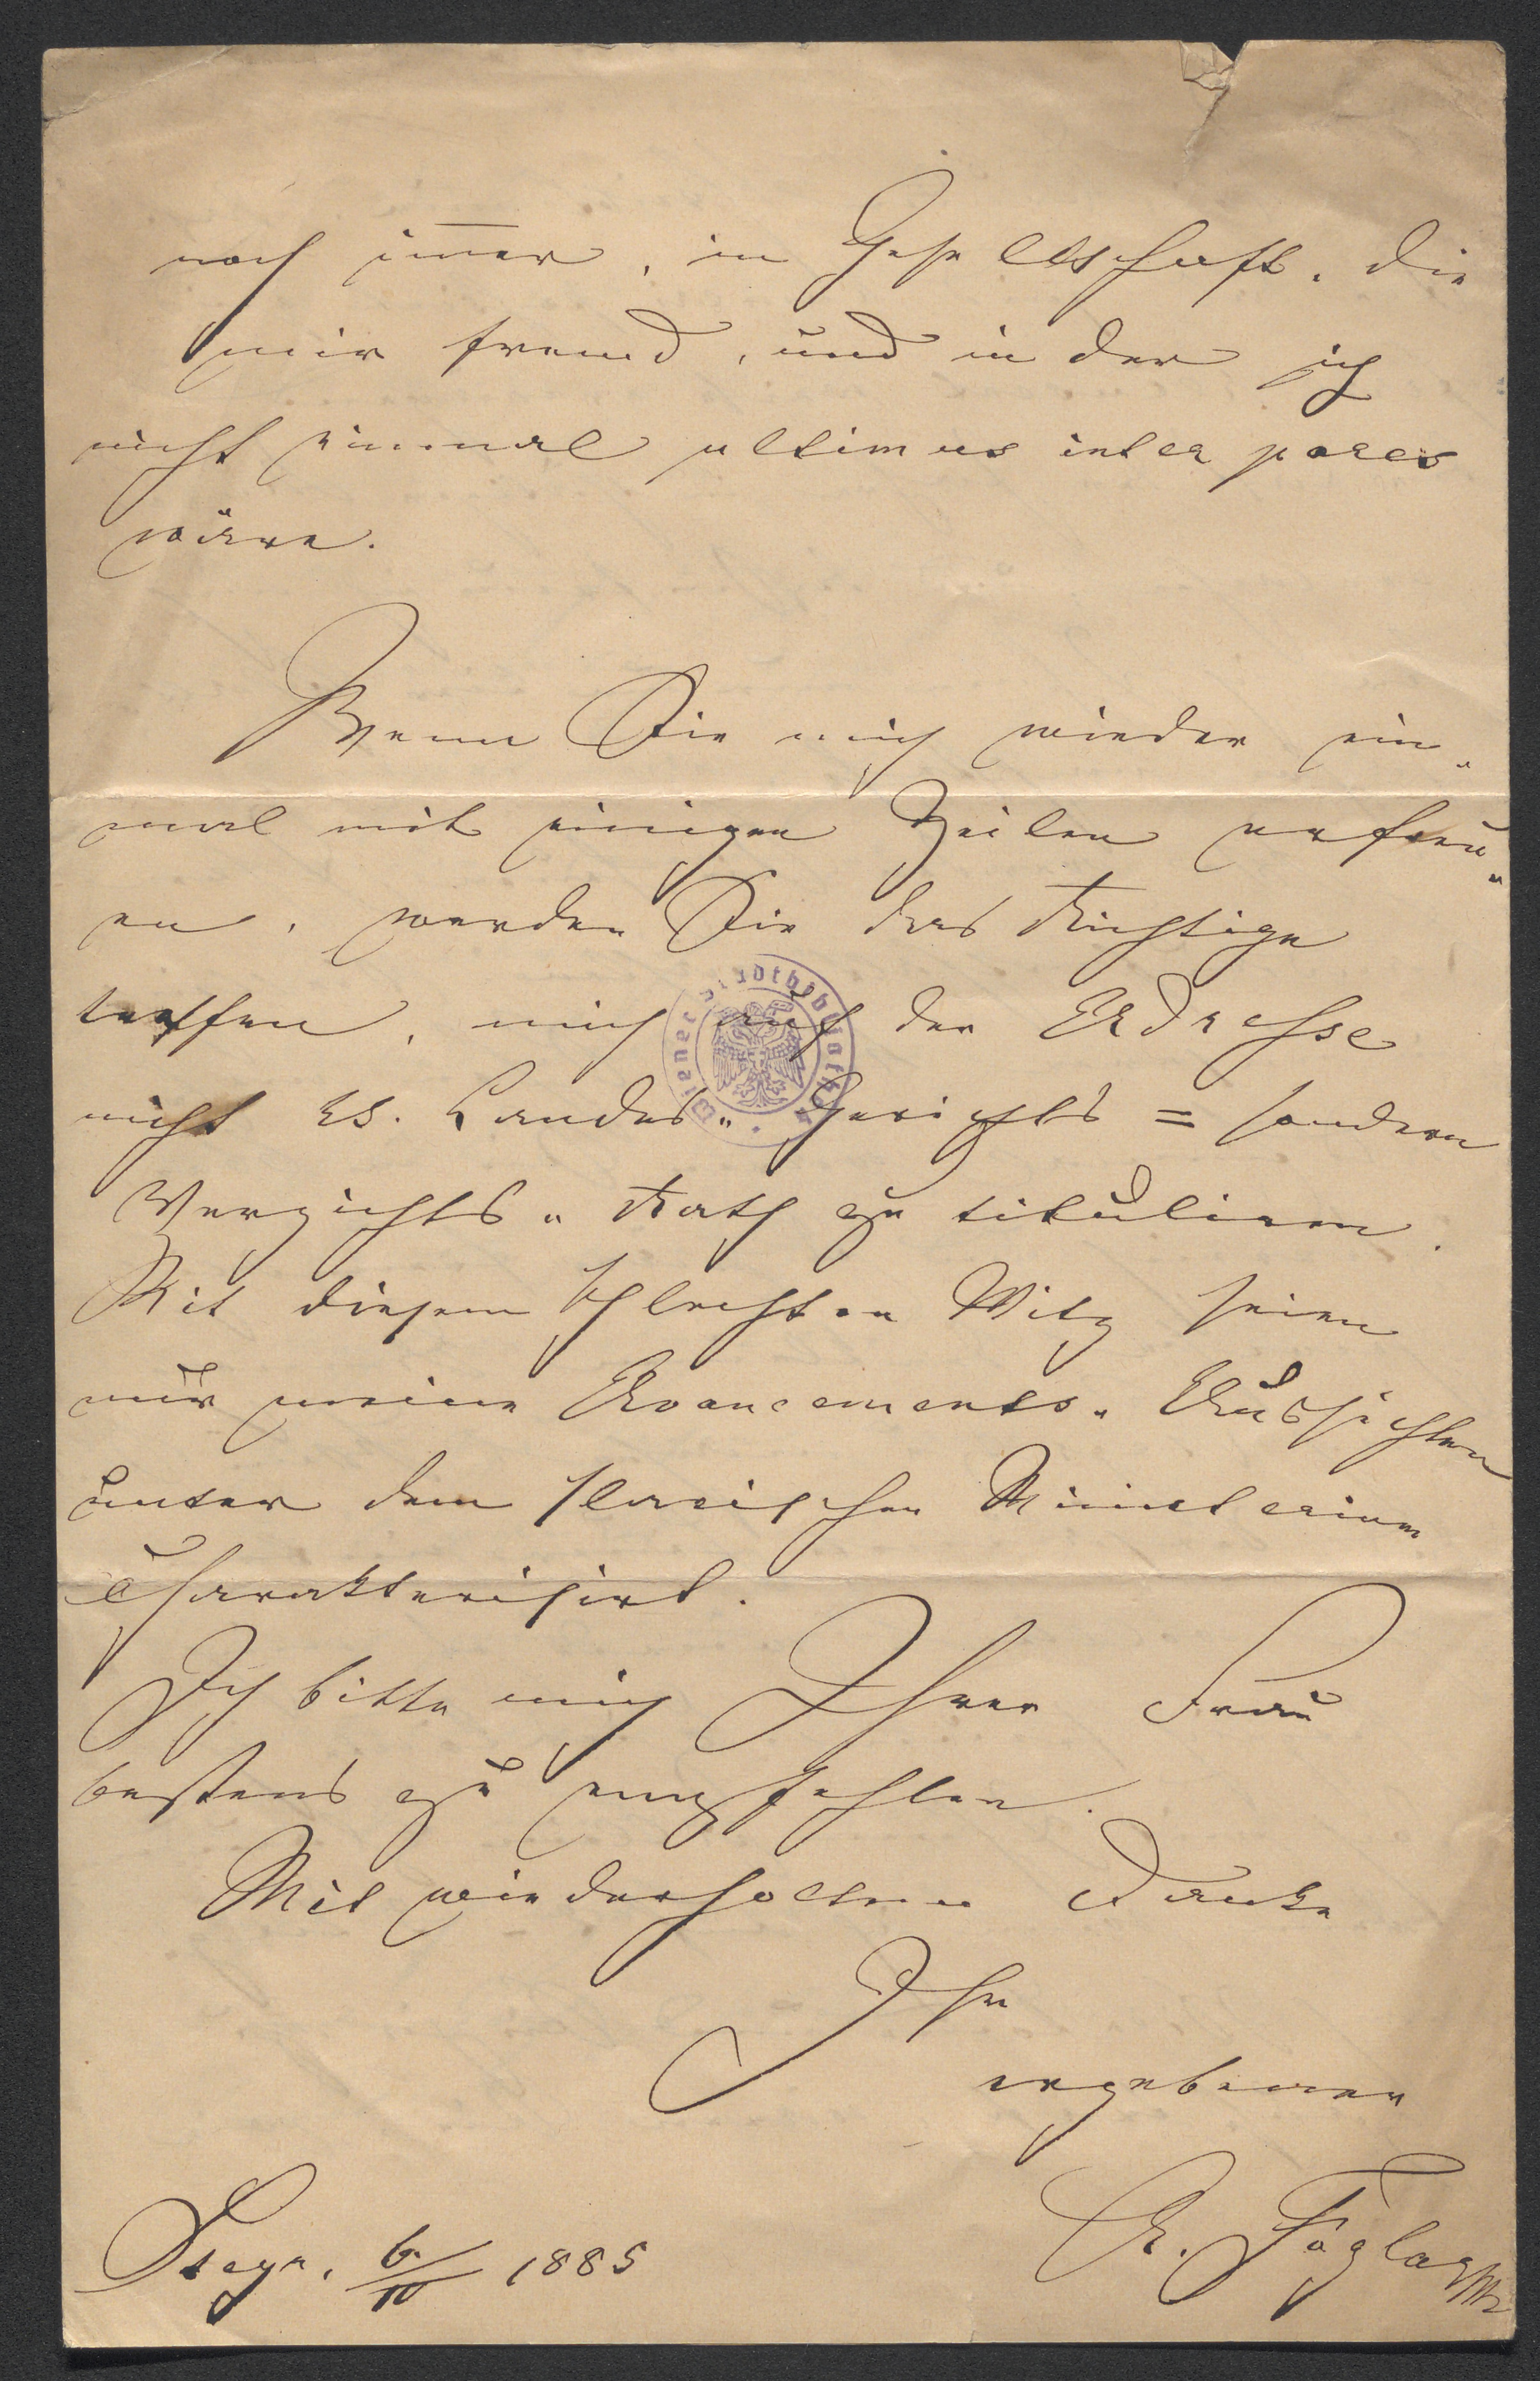 noch im̅er, in Gesellschaft, die
mir fremd, und in der ich
nicht einmal ultimus inter pares
wäre.
Wenn Sie mich wieder ein„
mal mit einigen Zeilen erfreu„
en, werden Sie das Richtige
treffen, mich auf der Adresse
nicht als Landes„Gerichts = sondern
Verzichts„Rath zu tituliren.
Mit diesem schlechten Witz seien
nur meine Avancements„Aussichten
unter dem slavischen Ministerium
charakterisirt.
Ich bitte mich Ihrer Frau
bestens zu empfehlen.
Mit wiederholtem Danke
Ihr
ergebener
A. Foglar
Steyr, 6/10 1885
Wiener Stadtbibliothek